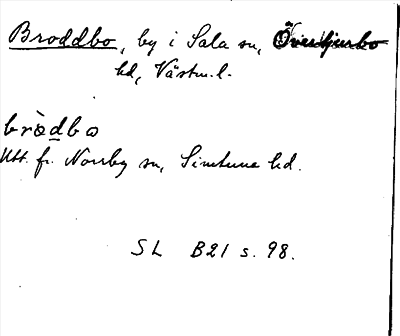 Broddbo, by i Sala sn, Övertjurbo
hd, Västm. l.
bròdbo
Utt. fr. Norrby sn, Simtuna hd.
SL B21 s. 98.